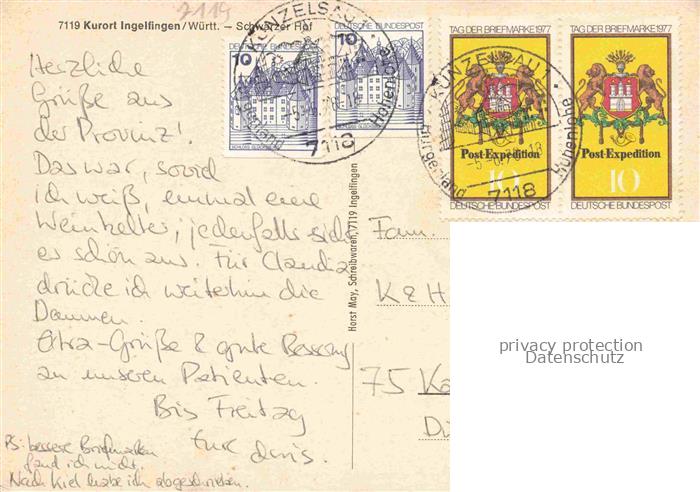 7119
7119 Kurort Ingelfingen/Württ. — Schwarzer Hof
Herzliche
Grüße aus
der Provinz!
Das war, soviel
ich weiß, einmal eine
Weinkelter, jedenfalls sieht
es schön aus. Für Claudia
drücke ich weiterhin die
Daumen.
Extra-Grüße & gute Besserung
an unseren Patienten.
Bis Freitag
Eure Doris.
PS: bessere Briefmarken
fand ich nicht.
Nach Kiel habe ich abgeschrieben.
Horst May, Schreibwaren, 7119 Ingelfingen
10 DEUTSCHE BUNDESPOST
SCHLOSS GLÜCKSBURG
10 DEUTSCHE BUNDESPOST
SCHLOSS GLÜCKSBURG
KÜNZELSAU 1
Hohenlohe
7118
TAG DER BRIEFMARKE 1977
Post-Expedition
10
DEUTSCHE BUNDESPOST
TAG DER BRIEFMARKE 1977
Post-Expedition
10
DEUTSCHE BUNDESPOST
KÜNZELSAU 1
Hohenlohe
7118
Fam.
75 Ka
privacy protection
Datenschutz